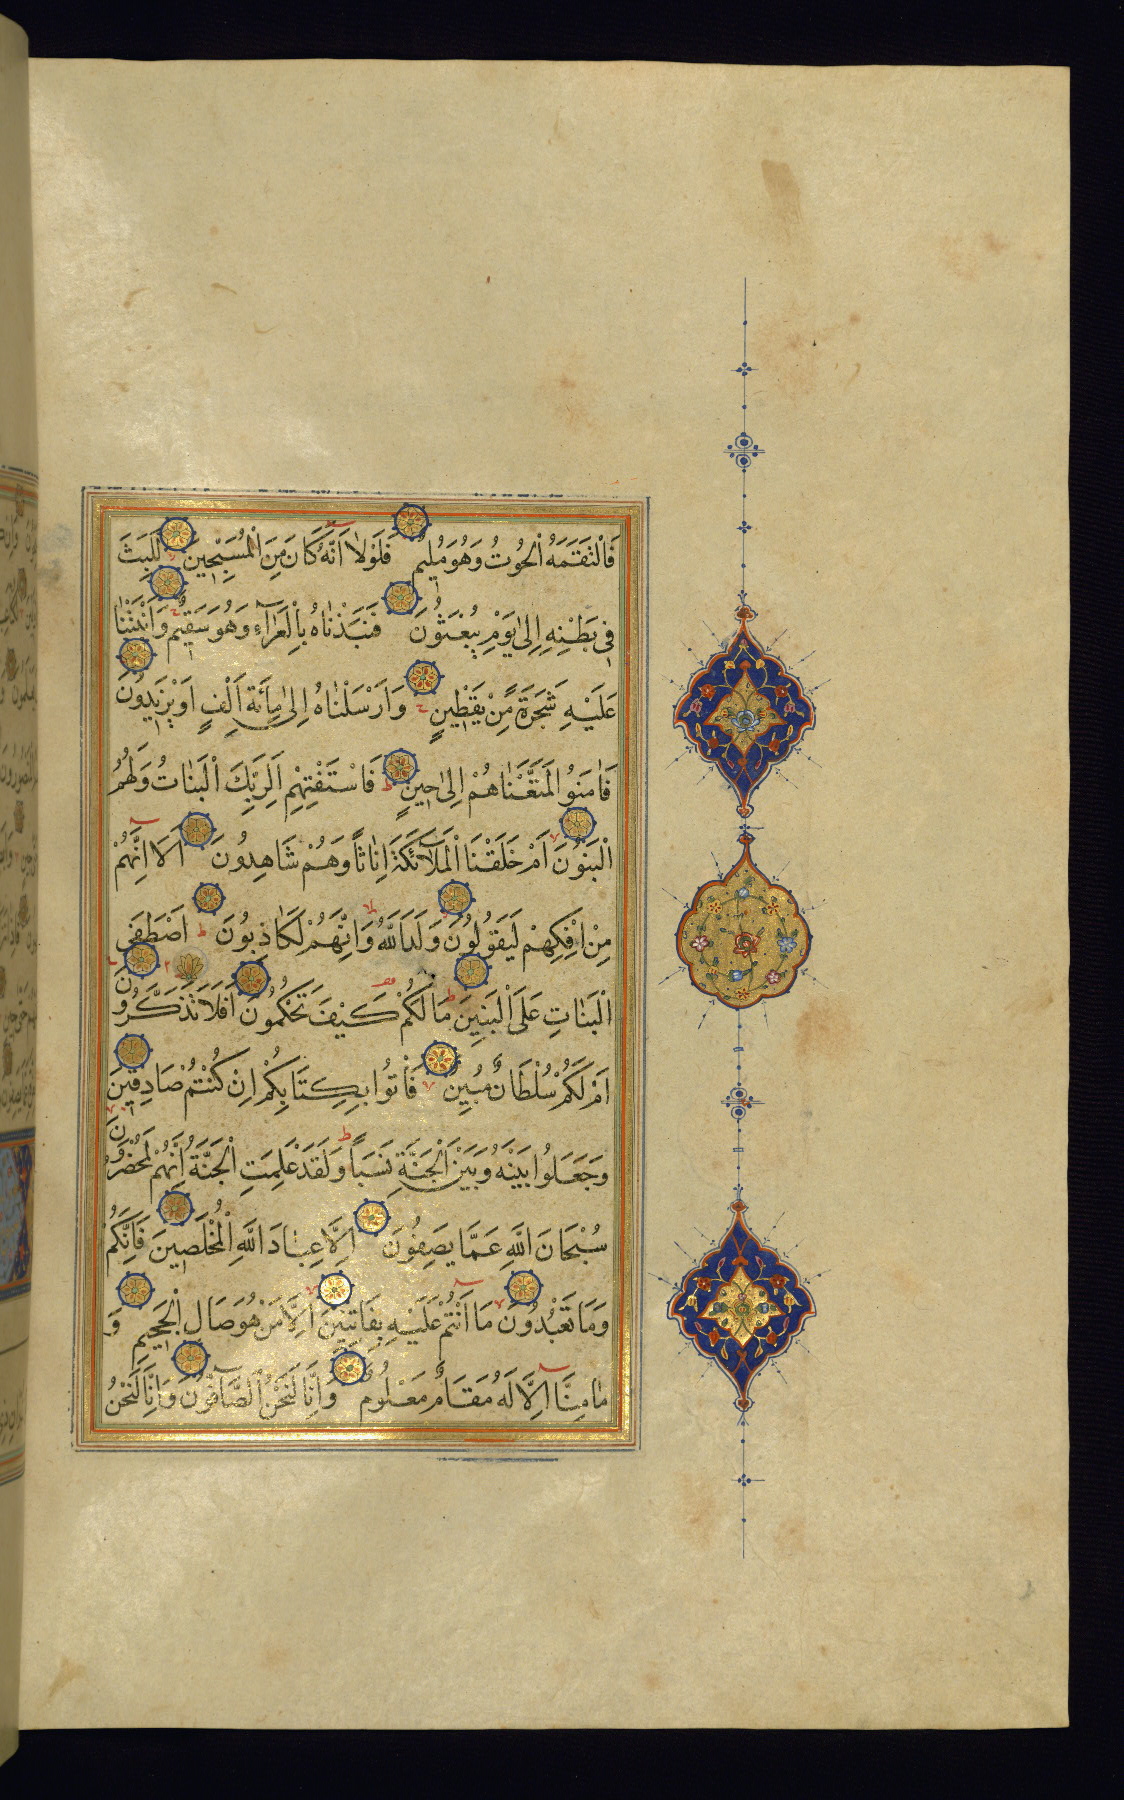 فَالْتَقَمَهُ الْحُوتُ وَهُوَ مُلِيمٌ فَلَوْلَا اَنَّهُ كَانَ مِنَ الْمُسَبِّحِينَ لَلَبِثَ
فِى بَطْنِهِ اِلٰى يَوْمِ يُبْعَثُونَ فَنَبَذْنَاهُ بِالْعَرَاءِ وَهُوَ سَقِيمٌ وَاَنْبَتْنَا
عَلَيْهِ شَجَرَةً مِنْ يَقْطِينٍ وَاَرْسَلْنَاهُ اِلٰى مِائَةِ اَلْفٍ اَوْ يَزِيدُونَ
فَاٰمَنُوا فَمَتَّعْنَاهُمْ اِلٰى حِينٍ فَاسْتَفْتِهِمْ اَلِرَبِّكَ الْبَنَاتُ وَلَهُمُ
الْبَنُونَ اَمْ خَلَقْنَا الْمَلَآئِكَةَ اِنَاثًا وَهُمْ شَاهِدُونَ اَلَا اِنَّهُمْ
مِنْ اِفْكِهِمْ لَيَقُولُونَ وَلَدَ اللّٰهُ وَاِنَّهُمْ لَكَاذِبُونَ اَصْطَفَى
الْبَنَاتِ عَلَى الْبَنِينَ مَا لَكُمْ كَيْفَ تَحْكُمُونَ اَفَلَا تَذَكَّرُونَ
اَمْ لَكُمْ سُلْطَانٌ مُبِينٌ فَاْتُوا بِكِتَابِكُمْ اِنْ كُنْتُمْ صَادِقِينَ
وَجَعَلُوا بَيْنَهُ وَبَيْنَ الْجِنَّةِ نَسَبًا وَلَقَدْ عَلِمَتِ الْجِنَّةُ اِنَّهُمْ لَمُحْضَرُونَ
سُبْحَانَ اللّٰهِ عَمَّا يَصِفُونَ اِلَّا عِبَادَ اللّٰهِ الْمُخْلَصِينَ فَاِنَّكُمْ
وَمَا تَعْبُدُونَ مَا اَنْتُمْ عَلَيْهِ بِفَاتِنِينَ اِلَّا مَنْ هُوَ صَالِ الْجَحِيمِ وَ
مَا مِنَّا اِلَّا لَهُ مَقَامٌ مَعْلُومٌ وَاِنَّا لَنَحْنُ الصَّافُّونَ وَاِنَّا لَنَحْنُ